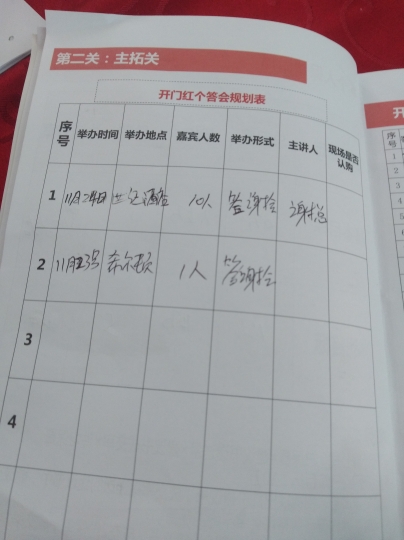 第二关：主拓关
开门红个答会规划表
序号 举办时间 举办地点 嘉宾人数 举办形式 主讲人 现场是否认购
1 11月24日 酒店 10人 答谢 谢总
2 11月 希尔顿 1人 答谢
3
4
开
序号
1
2
3
4
5